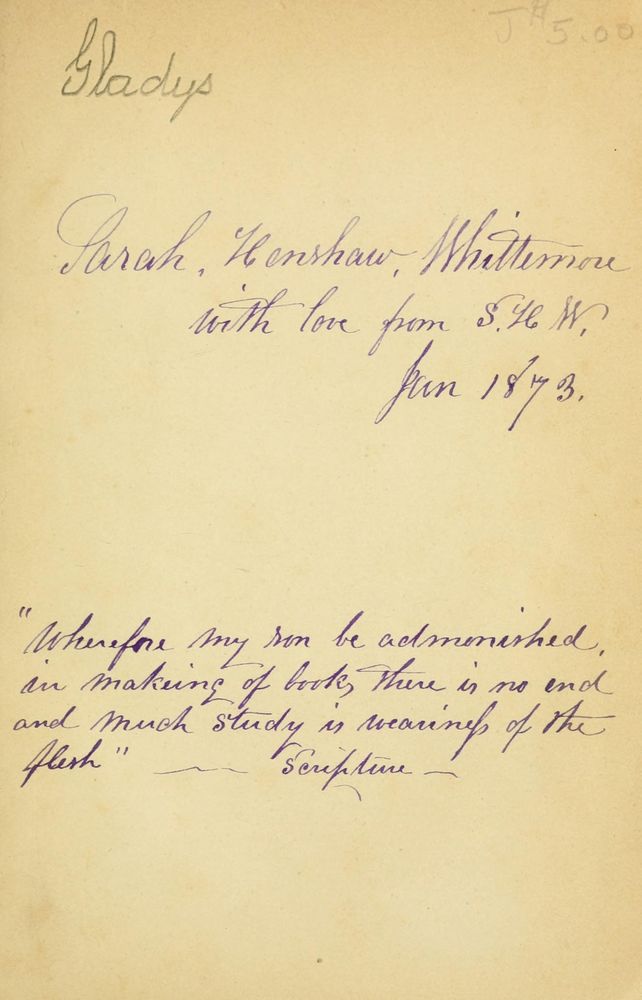 J $5.00
Gladys
Sarah, Henshaw, Whittemore
with love from S. H W,
Jan 1873.
"Wherefore my son be admonished,
in makeing of books there is no end
and much study is weariness of the
flesh" — Scripture —